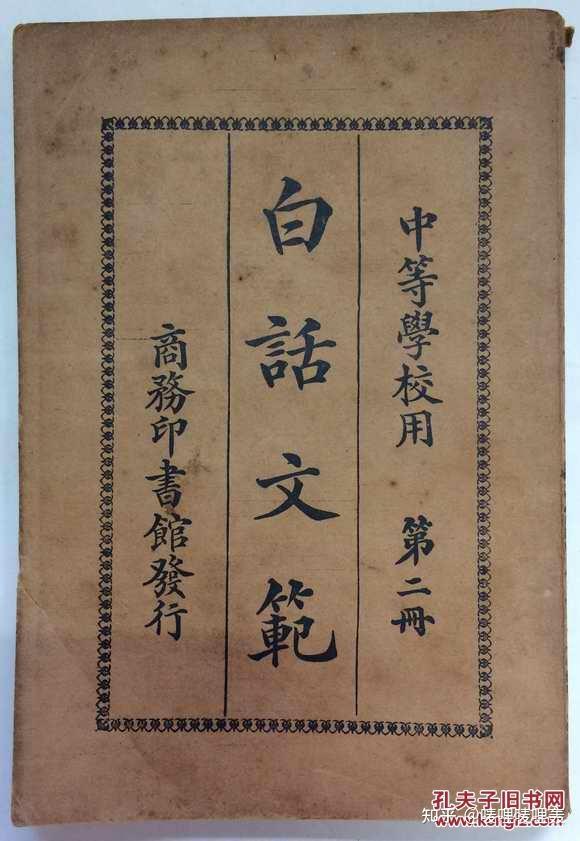 中等學校用　第二冊
白話文範
商務印書館發行
孔夫子旧书网
www.kongfz.com